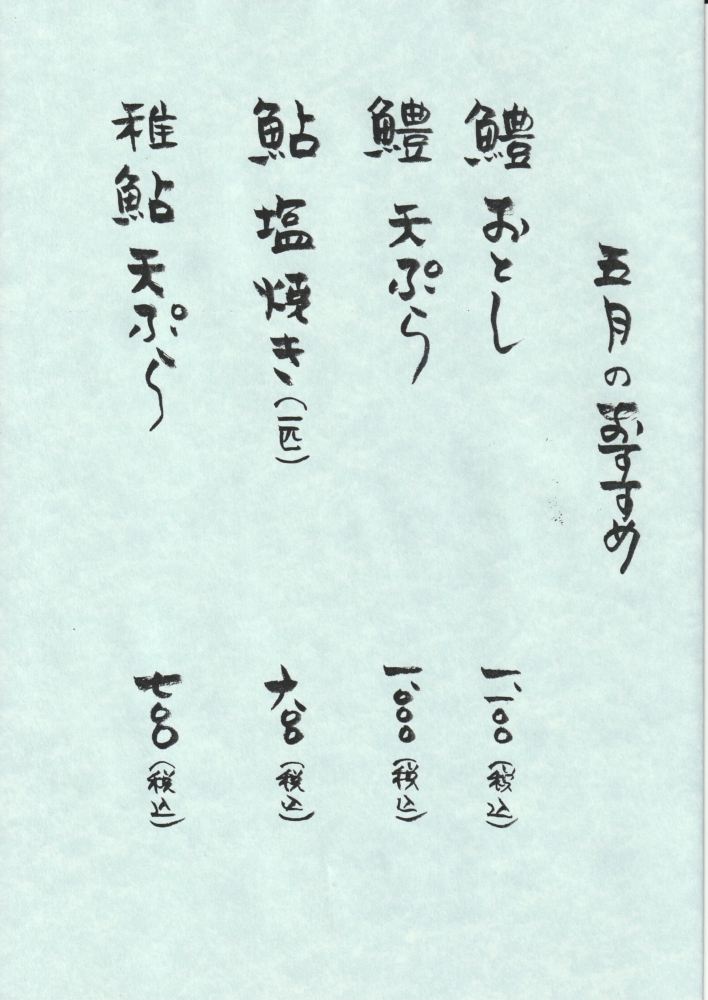 五月のおすすめ
鱧 おとし 一、一〇〇(税込)
鱧 天ぷら 一、〇〇〇(税込)
鮎 塩焼き(一匹) 六〇〇(税込)
稚鮎 天ぷら 七〇〇(税込)